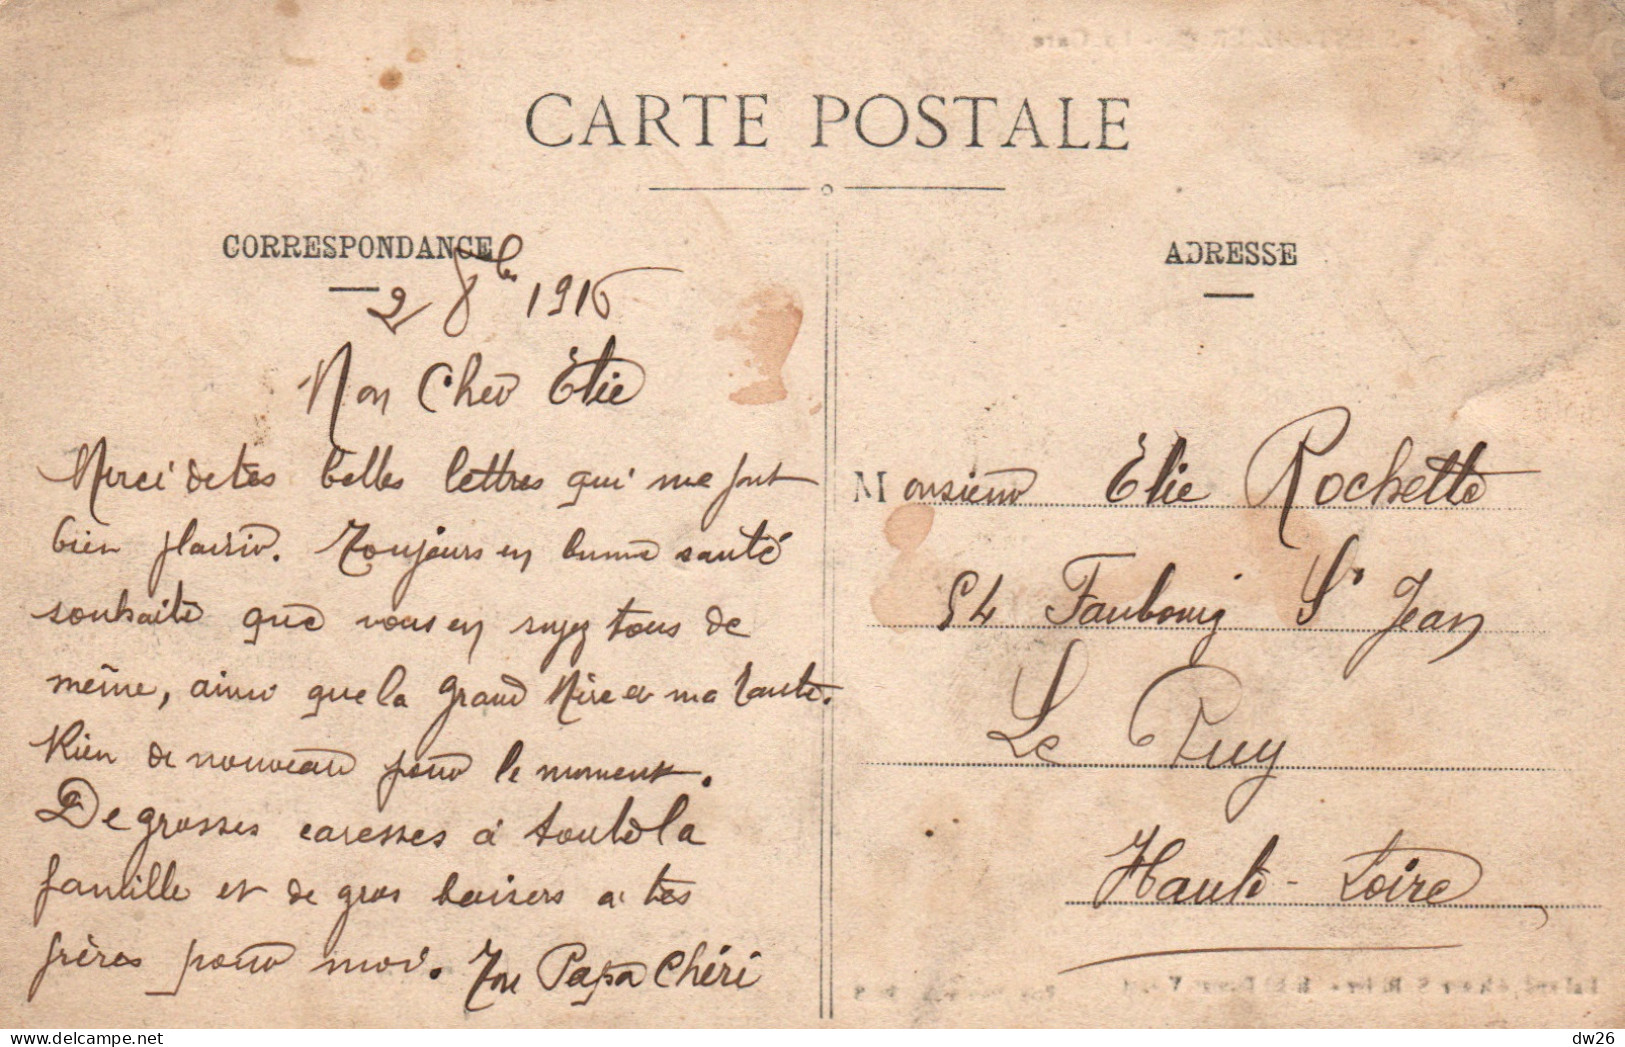 CARTE POSTALE
CORRESPONDANCE
2 8bre 1916
Mon Cher Élie
Merci de tes belles lettres qui me font
bien plaisir. Toujours en bonne santé
souhaite que vous en soyez tous de
même, ainsi que la Grand Mère et ma tante.
Rien de nouveau pour le moment.
De grosses caresses à toute la
famille et de gros baisers à tes
frères pour moi. Ton Papa Chéri
ADRESSE
Monsieur Élie Rochette
54 Faubourg St Jean
Le Puy
Haute-Loire
dw26